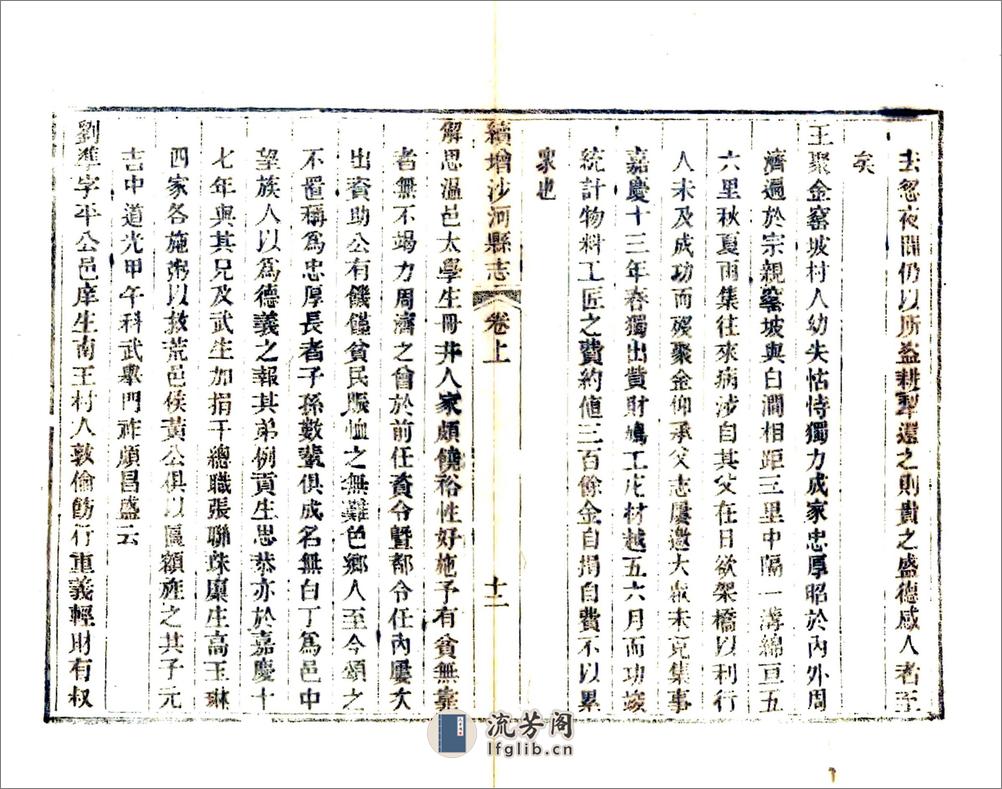 去忽夜間仍以所盗耕犁還之則貴之盛德感人者至
矣
王聚金窑坡村人幼失怙恃獨力成家忠厚昭於內外周
濟遍於宗親窰坡與白澗相距三里中隔一溝綿亘五
六里秋夏雨集往來病涉自其父在日欲架橋以利行
人未及成功而殁聚金仰承父志屢邀大衆未克集事
嘉慶十三年春獨出貲財鳩工庀材越五六月而功竣
統計物料工匠之費約値三百餘金自捐自費不以累
衆也
續增沙河縣志 卷上 十二
解思溫邑太學生冊井人家頗饒裕性好施予有貧無靠
者無不竭力周濟之曾於前任賫令曁都令任內屢次
出資助公有饑饉貧民賑恤之無難色鄉人至今頌之
不置稱爲忠厚長者子孫數輩俱成名無白丁爲邑中
望族人以爲德義之報其弟例貢生思恭亦於嘉慶十
七年與其兄及武生加捐千總職張聯珠廩生高玉琳
四家各施粥以救荒邑侯黃公俱以匾額旌之其子元
吉中道光甲午科武擧門祚頗昌盛云
劉準字平公邑庠生南王村人敦倫飭行重義輕財有叔
流芳阁
lfglib.cn